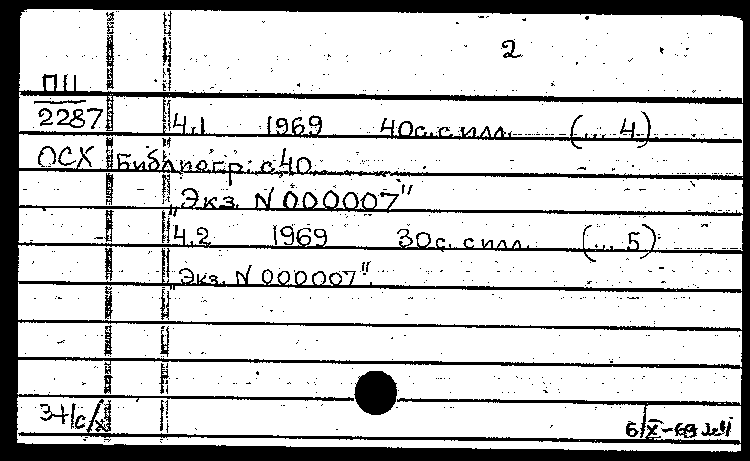 2
П11
2287 Ч.1 1969 40с. с илл. (... 4)
ОСХ Библиогр.: с.40
„Экз. N 000007"
Ч.2 1969 30с. с илл. (... 5)
„Экз. N 000007".
3+1с/х 6/X-69